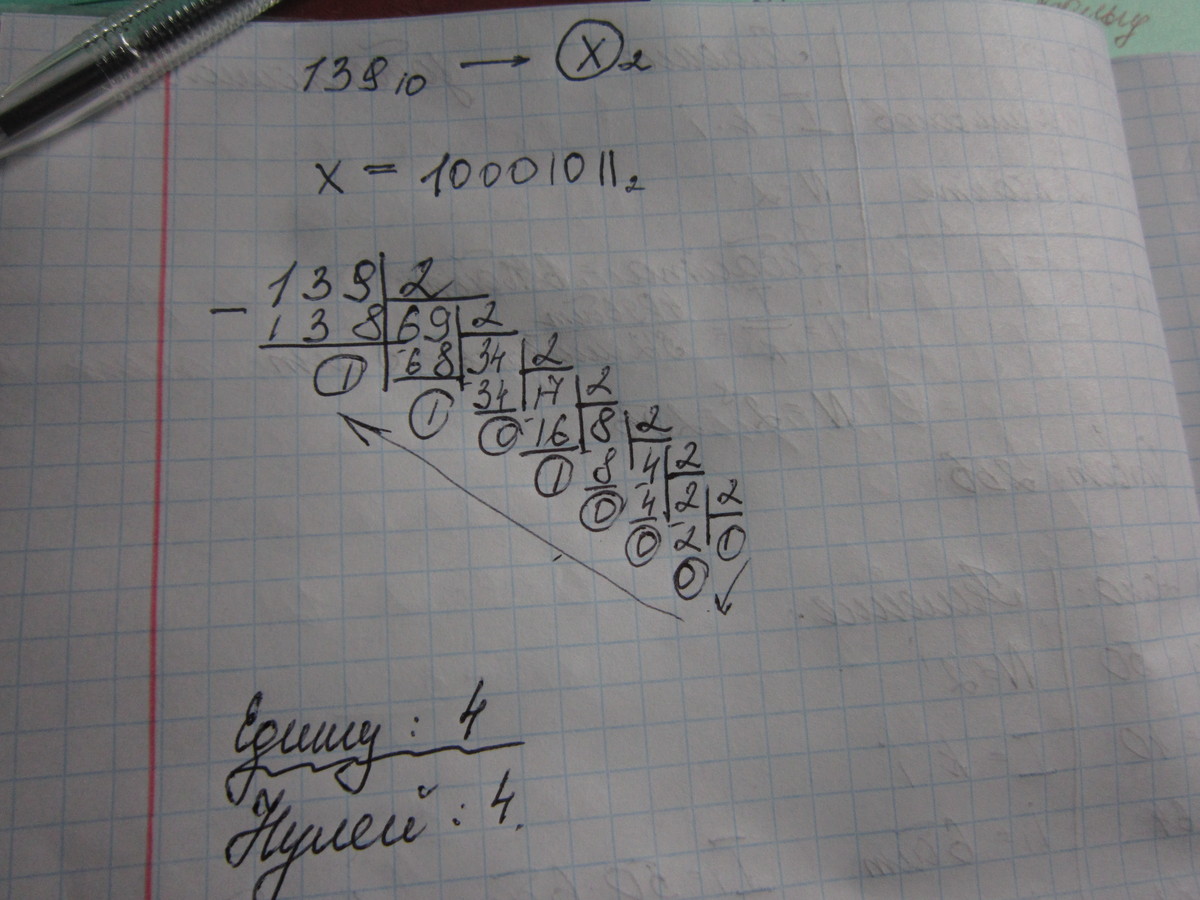 139₁₀ → X₂
x = 10001011₂
139 2
- 138 69 2
1 -68 34 2
1 34 17 2
0 -16 8 2
1 8 4 2
0 -4 2 2
0 -2 1
0
Единиц: 4
Нулей: 4.